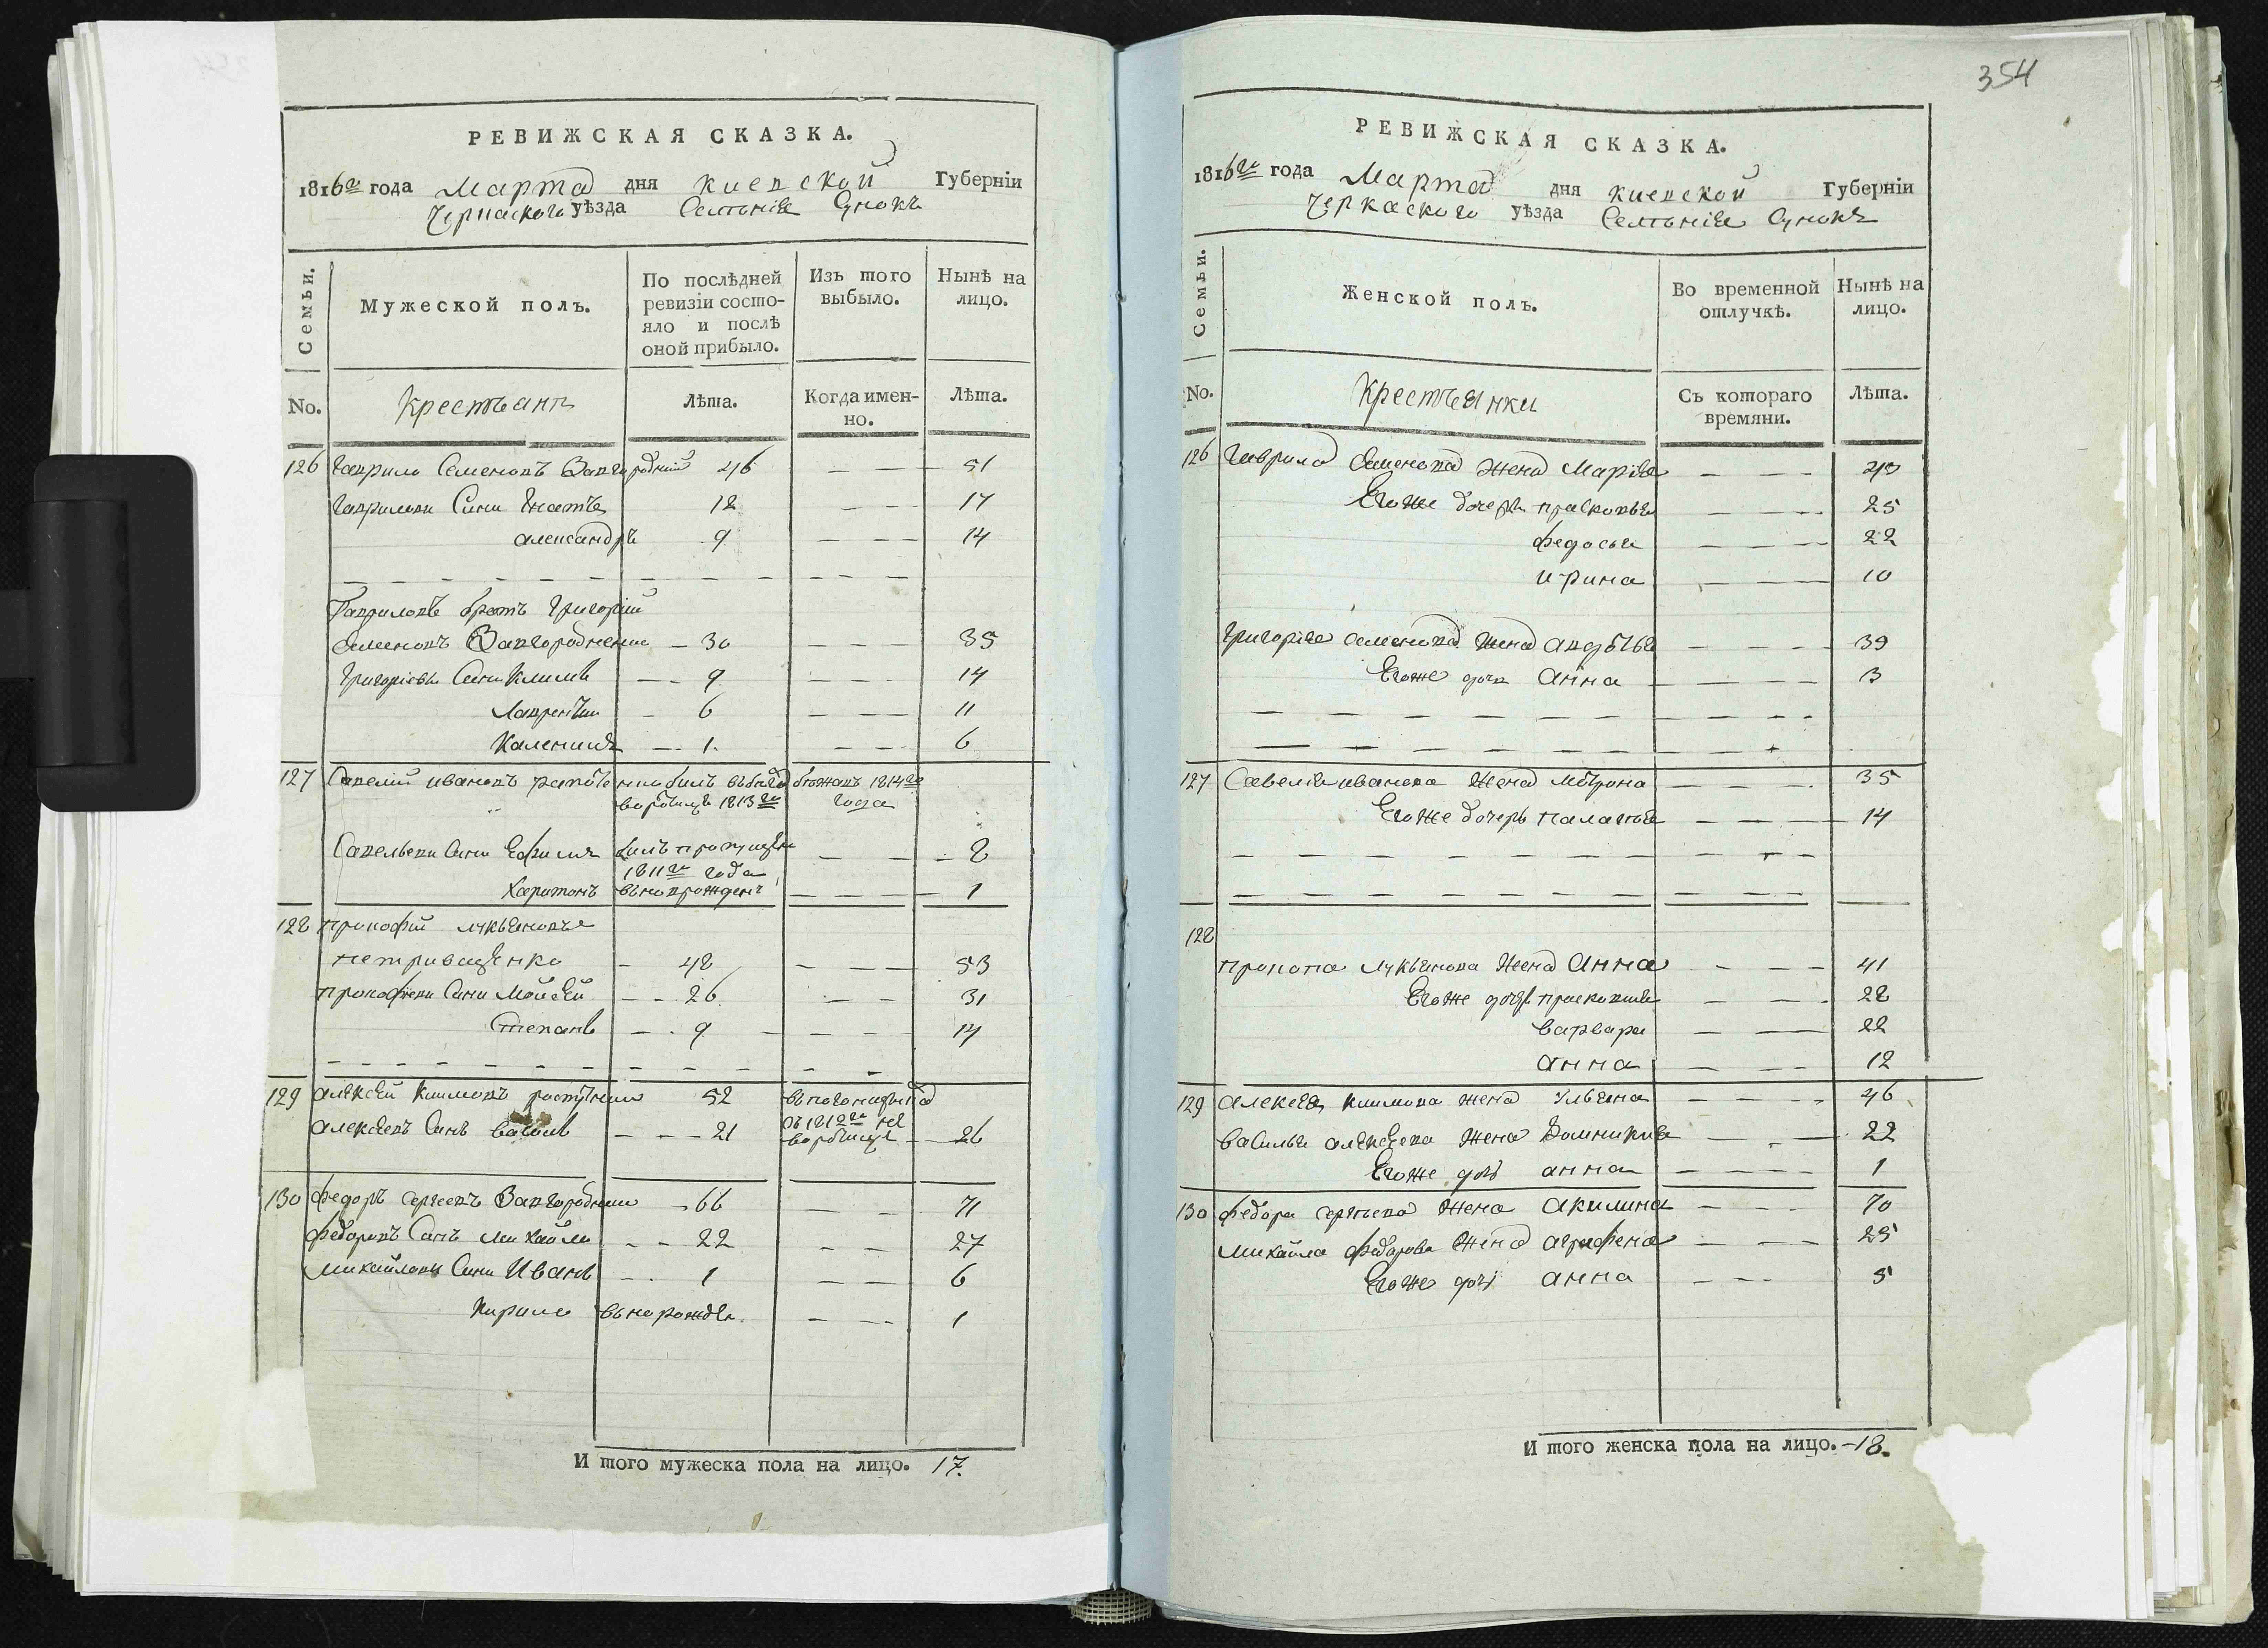 354
РЕВИЖСКАЯ СКАЗКА.
1816го года Марта дня киевской Губерніи
Черкаского уѣзда Селѣнія Сунокъ
Семьи.
Мужеской полъ.
По послѣдней ревизіи состо-
яло и послѣ оной прибыло.
Изъ того выбыло.
Нынѣ на лицо.
No.
Крестьянъ
Лѣта.
Когда имен-
но.
Лѣта.
126 Гаврило Семеновъ Завгородній 46 — — — 51
Гавриловы Сини Игнатъ 12 — — — 17
александръ 9 — — — 14
Гавриловъ братъ Григорій
Семеновъ Завгородненко — 30 — — — 35
Григоріевы Сини Климъ — — 9 — — — 14
Лаврентіи — 6 — — — 11
Каленикъ — — 1. — — — 6
127 Савелій ивановъ билъ бѣжавъ 1814го
1813го года
Савельевы Сини Ефимъ билъ пропущенъ — — — 8
1811го года
Харитонъ вьноврожденъ — — — 1
128 Прокофій лукьяновъ
петриващенко — 48 — — — 53
прокофіевы Сини Мойсей — — 26 — — 31
Степанъ — — 9 — — — 14
129 алексей Климовъ 52
алексеевъ Синъ васил — — — 21 — 26
130 федоръ сергеевъ Завгородніи — 66 — — 71
федоровъ Синъ михайло — — 22 — — 27
михайловы Сини Иванъ — — 1 — — 6
Кирило вьнорожден. — — — 1
И того мужеска пола на лицо. 17.
РЕВИЖСКАЯ СКАЗКА.
1816го года Марта дня киевской Губерніи
Черкаского уѣзда Селѣнія Сунокъ
Семьи.
Женской полъ.
Во временной отлучкѣ.
Нынѣ на лицо.
No.
Крестьянки
Съ котораго времяни.
Лѣта.
126 Гаврила Семенова жена Марія — — —
Егоже дочери прасковья — — — 25
федосья — — — 22
ирина — — — 10
Григорія семенова жена авдотья — — — 39
Егоже дочь анна — — — 3
127 Савелія иванова жена мотрона — — — 35
Егоже дочерь палагея — — — 14
128
прокопа лукьянова жена анна — — — 41
Егоже дочери прасковия — — — 28
варвара — — — 22
анна — — — 12
129 алексея климова жена ульяна — — — 46
василья алексеева жена Домникия — — — 22
Егоже дочь анна — — — 1
130 федора сергѣева жена акилина — — — 70
михайла федорова жена агрофена — — — 25
Егоже дочь анна — — — 5
И того женска пола на лицо. — 18.